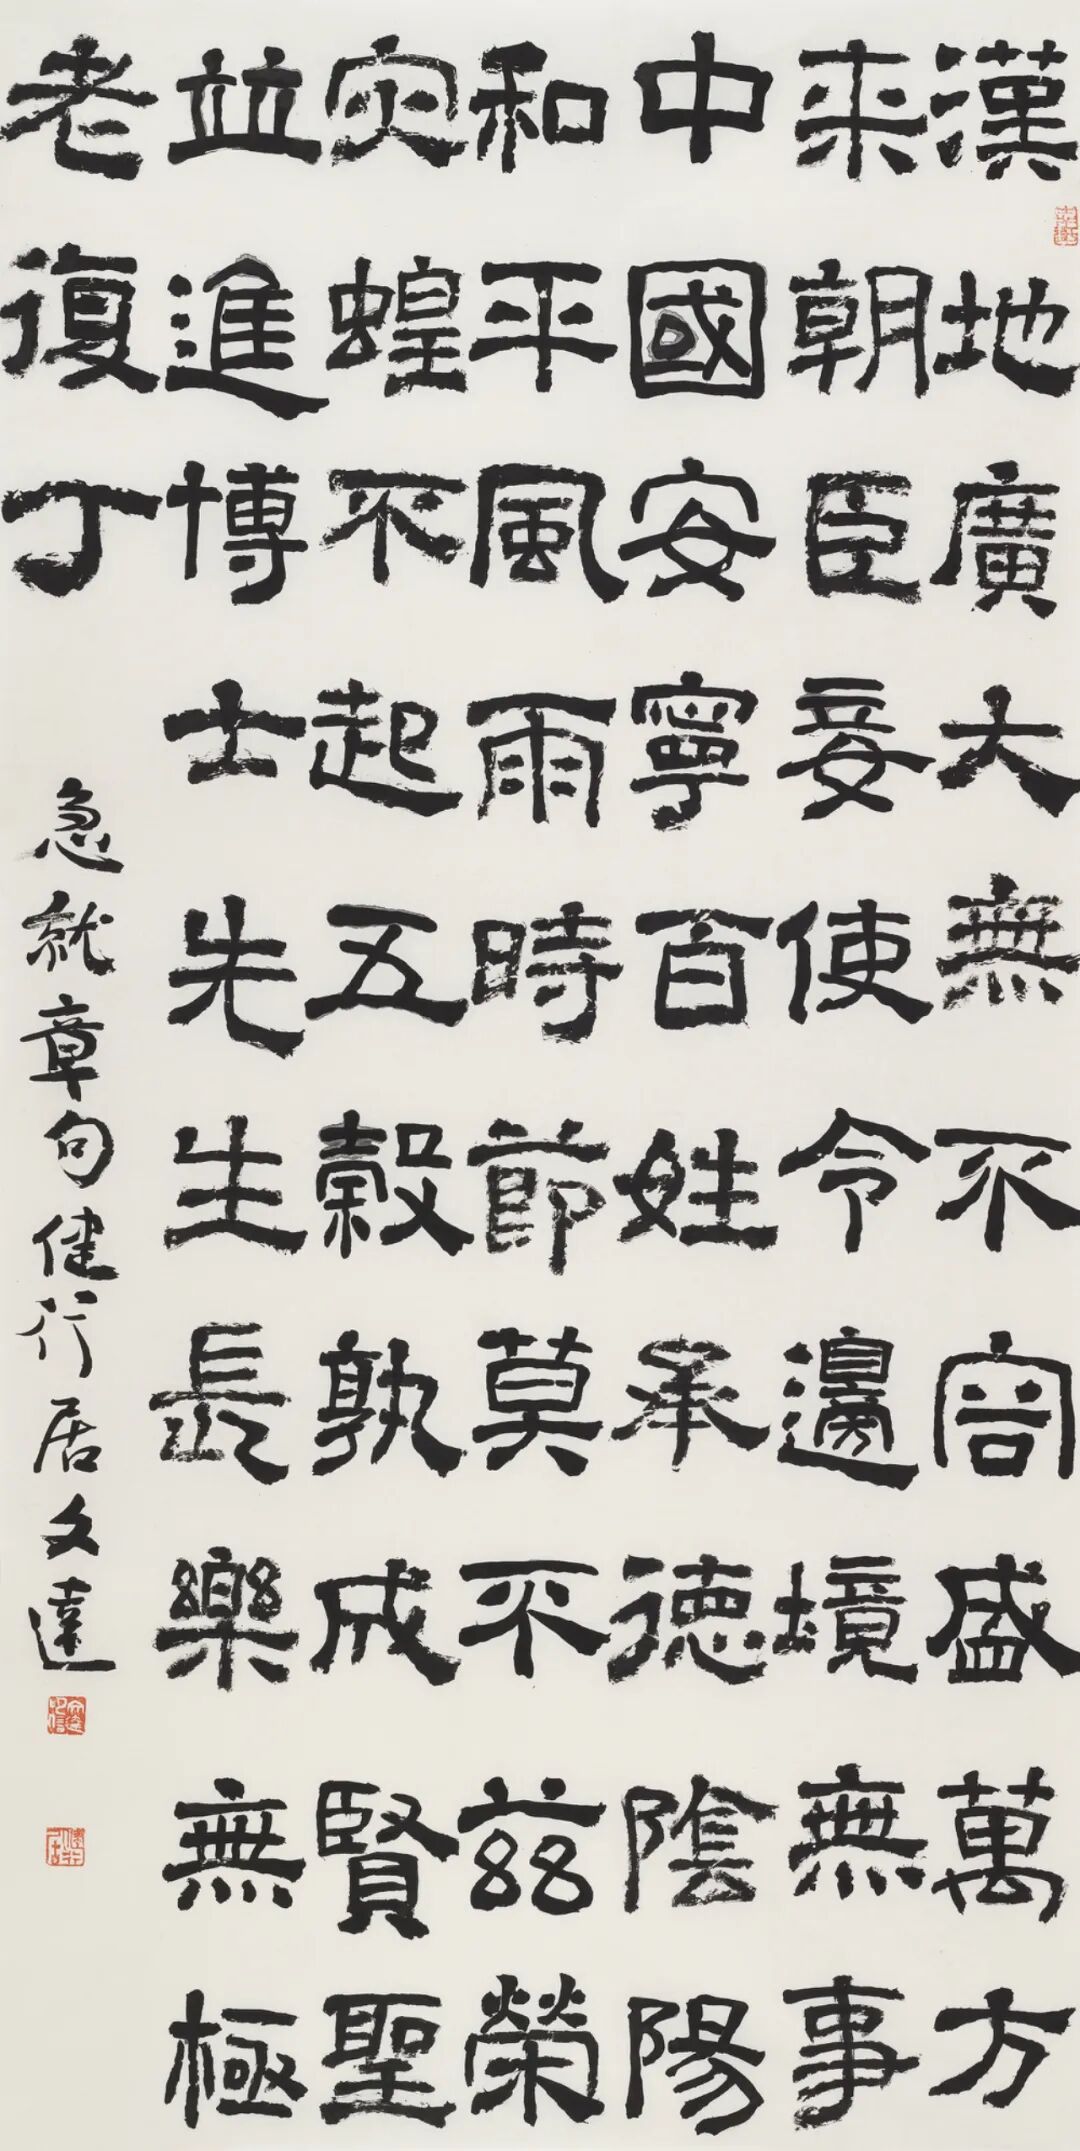 漢地廣大無不容盛萬方
來朝臣妾使令邊境無事
中國安寧百姓承德陰陽
和平風雨時節莫不茲榮
灾蝗不起五穀孰成賢聖
並進博士先生長樂無極
老復丁
急就章句健行居文達
文達印信
健行居